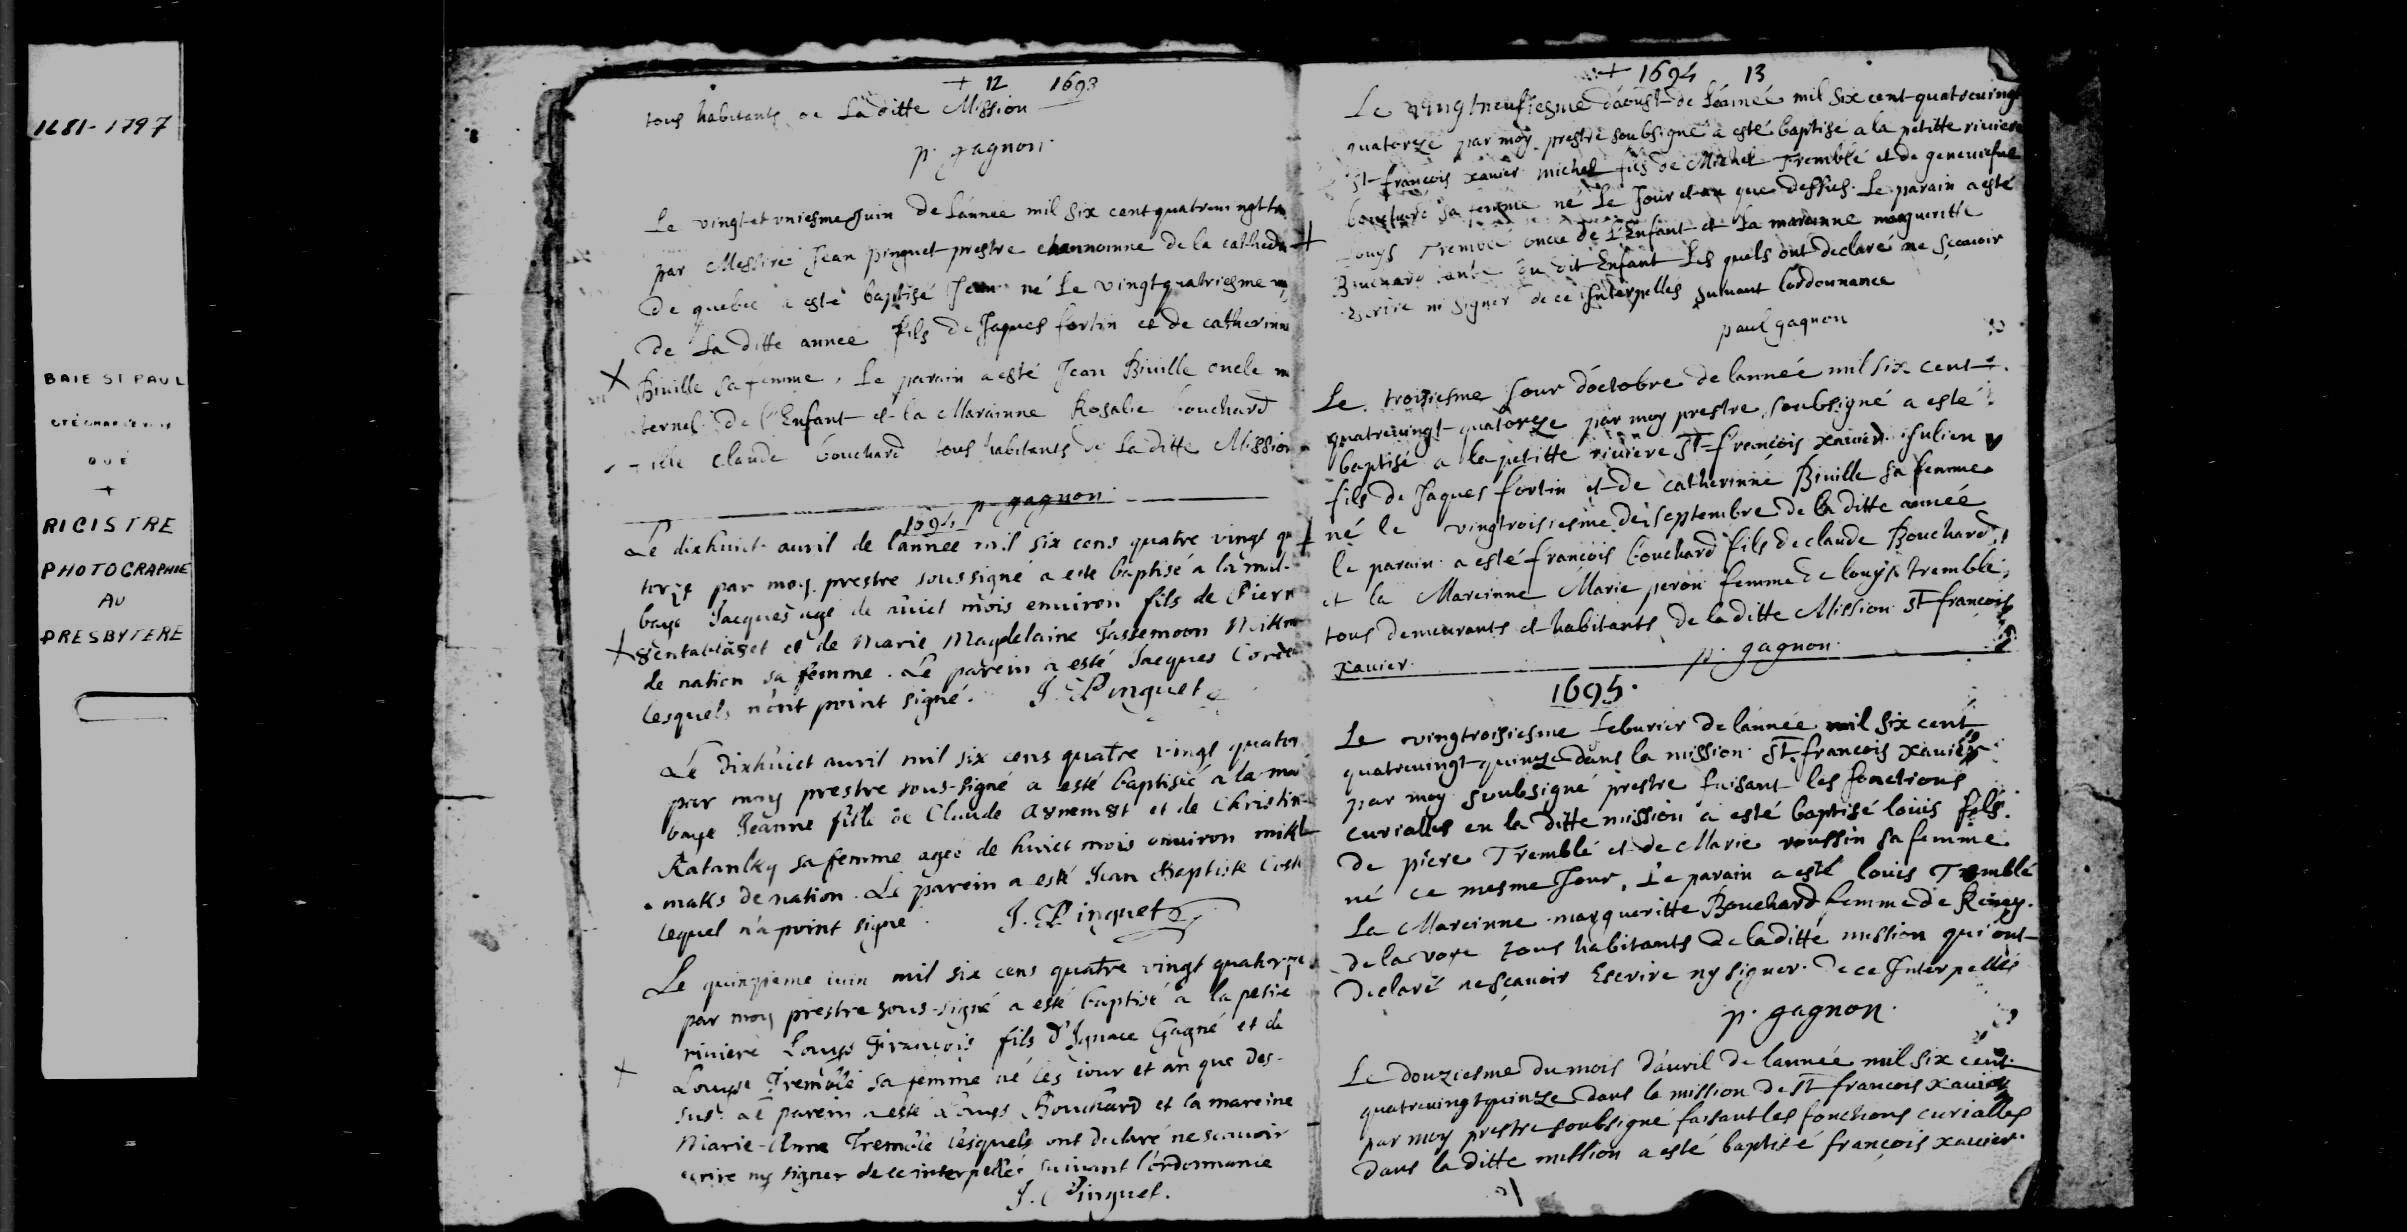 1681-1797
BAIE ST PAUL
QUÉ
+
RICISTRE
PHOTOGRAPHIE
AU
PRESBYTERE
+ 12 1693
tous habitants de La ditte Mission
p. gagnon.
Le vingt et vniesme Juin de L'année mil six cent quatreuingt
par Messire Jean pinguet prestre channoinne de la cathedr
De quebec a esté baptisé Jean né Le vingtquatriesme
De La ditte année fils de Jaques fortin et de catherinne
Biuille sa femme, Le parain a esté Jean Biuille oncle m
ternel de l'Enfant et la Marainne Rosalie bouchard
fille claude bouchard tous habitants de La ditte Mission
p. gagnon
1694
Le dixhuict auril de l'année mil six cens quatre vingt qu
torze par moy prestre soussigné a esté baptisé à la mal-
baye Jacques agé de huict mois enuiron fils de Pierr
et de Marie Magdelaine
de nation sa femme. Le parein a esté Jacques
lesquels n'ont point signé. J. Pinguet
Le dixhuict auril mil six cens quatre vingt quator
par moy prestre sous-signé a esté baptisée a la mal
baye Jeanne fille de Claude et de Christin
sa femme agée de huict mois enuiron mikl
maks de nation. Le parein a esté Jean Baptiste
lequel n'a point signé. J. Pinguet
Le quinzième iuin mil six cens quatre vingt quatorze
par moy prestre sous-signé a esté baptisé à la petite
riuiere Louys François fils d'Ignace Gagné et de
Louyse Tremblé sa femme né les iour et an que des-
sus. Le parein a esté Louys Bouchard et la mareine
Marie-Anne Tremblé lesquels ont declaré ne scauoir
ecrire ny signer de ce interpellés suiuant l'ordonnance
J. Pinguet.
+ 1694 13
Le vingtneufiesme d'aoust de L'année mil six cent quatreuingt
quatorze par moy prestre soubsigné a esté baptisé a la petitte riuiere
St francois xauier michel fils de Michel Tremblé et de geneuiefue
bouchard sa femme né Le Jour et an que dessus. Le parain a esté
Louys Tremblé oncle de L'Enfant et La marainne margueritte
Bouchard tante du dit Enfant Les quels ont declaré ne scauoir
Escrire ni signer de ce Interpellés suiuant Lordonnance
paul gagnon
Le troisiesme Jour d'octobre de lannée mil six cent
quatreuingt-quatorze par moy prestre soubsigné a esté
baptisé a la petitte riuiere St francois xauier Julien
fils de Jaques fortin et de catherinne Biuille sa femme
né le vingtroisiesme de septembre de la ditte année
le parain a esté francois bouchard fils de claude Bouchard,
et la Mareinne Marie peron femme de louys tremblé,
tous demeurants et habitants de la ditte Mission St francois
xauier. p. gagnon.
1695.
Le vingtroisiesme feburier de lannée mil six cent
quatreuingt-quinze dans la mission St francois xauier
par moy soubsigné prestre faisant les fonctions
curialles en la ditte mission a esté baptisé louis fils.
de piere Tremblé et de Marie roussin sa femme
né ce mesme Jour, Le parain a esté louis Tremblé
La Mareinne margueritte Bouchard femme de Réney.
de la voye tous habitants de la ditte mission qui ont
declaré ne scauoir Escrire ny signer. De ce Interpellés
p. gagnon.
Le douziesme du mois d'auril de lannée mil six cent
quatreuingtquinze dans la mission de St francois xauier
par moy prestre soubsigné faisant les fonctions curialles
dans la ditte mission a esté baptisé françois xauier.